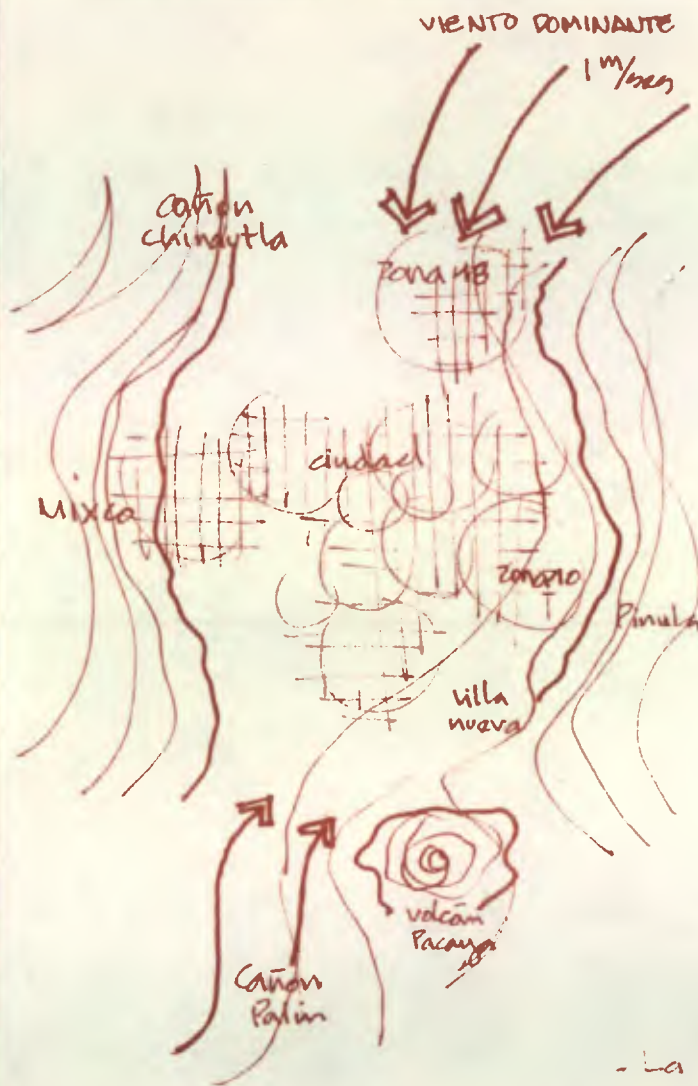 VIENTO DOMINANTE
1 m/seg
cañon
chinautla
Zona 18
ciudad
Mixco
zona 10
Pinula
villa
nueva
volcán
Pacaya
Cañon
Palin
- La